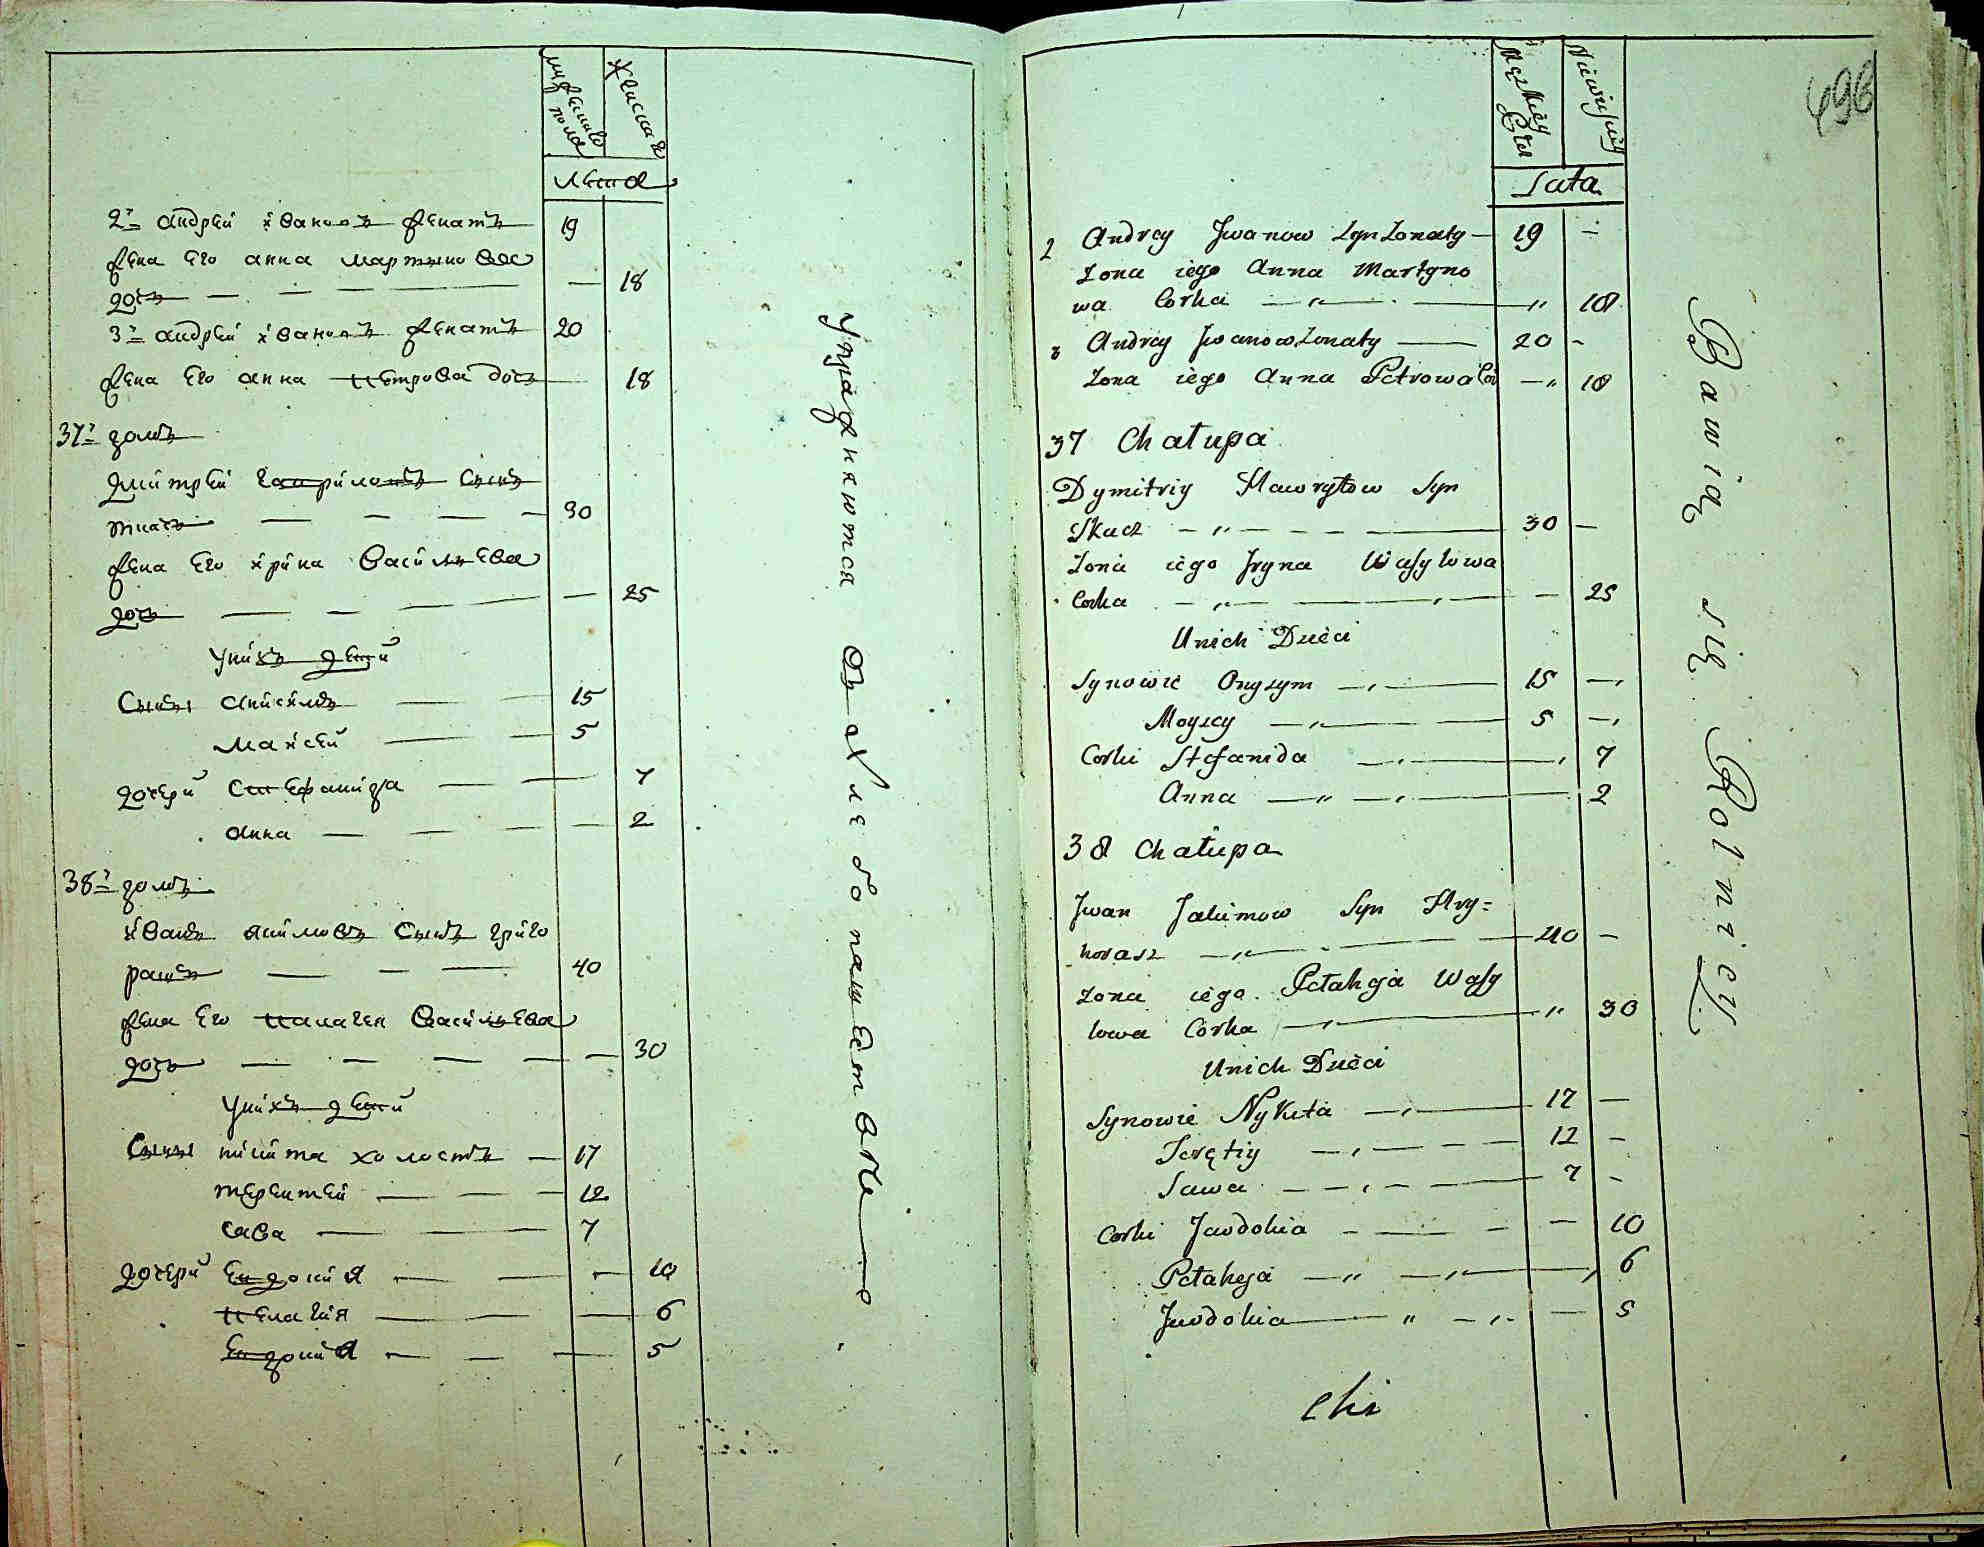 мужеска пола
женска
лета
2й андрей иванов женатъ 19
жена его анна мартинова
дочь — — — 18
3й андрей иванов женатъ 20
жена его анна петрова дочь — 18
37й домъ
дмитрей гаврилов сынъ
ткачъ — — — 30
жена его ирина васильева
дочь — — — 25
уних детей
Сыны анисимъ — 15
майсей — 5
дочери стефанида — 7
анна — — — 2
38й домъ
иванъ якимовъ сынъ григо
рашъ — — — 40
жена его палагея васильева
дочь — — — 30
уних детей
Сыны никита холостъ — 17
терентей — — — 12
сава — — 7
дочери евдокия — — — 10
пелагия — — 6
евдокия — — — 5
упражняются въ хлебопашестве
496
Męzkiey Płci
Niewiesciey
Lata
2 Andrey Jwanow Syn Zonaty — 19 —
Zona iego Anna Martyno
wa Corka — „ — „ 18
3 Andrey Jwanow Zonaty — 20 -
Zona iego Anna Petrowa Cor — „ 18
37 Chałupa
Dymitriy Hawryłow Syn
Tkacz — „ — — — 30 —
Zona iego Jryna Wasylowa
Corka — „ — — 25
Unich Dzieci
Synowie Onyzym — „ — 15 —
Moyzey — „ — 5 —
Corki Stefanida — „ — 7
Anna — „ — „ — 2
38 Chałupa
Jwan Jakimow Syn Hry=
horasz — „ — — 40 —
Zona iego Pełaheja Wasy
lowa Corka — „ — „ 30
Unich Dzieci
Synowie Nykita — „ — 17 —
Terętiy — „ — — 12 —
Sawa — — „ — — 7 -
Corki Jawdokia — — — — 10
Pełaheja — „ — „ — 6
Jawdokia — „ — „ — 5
Bawią się Rolniey
cki